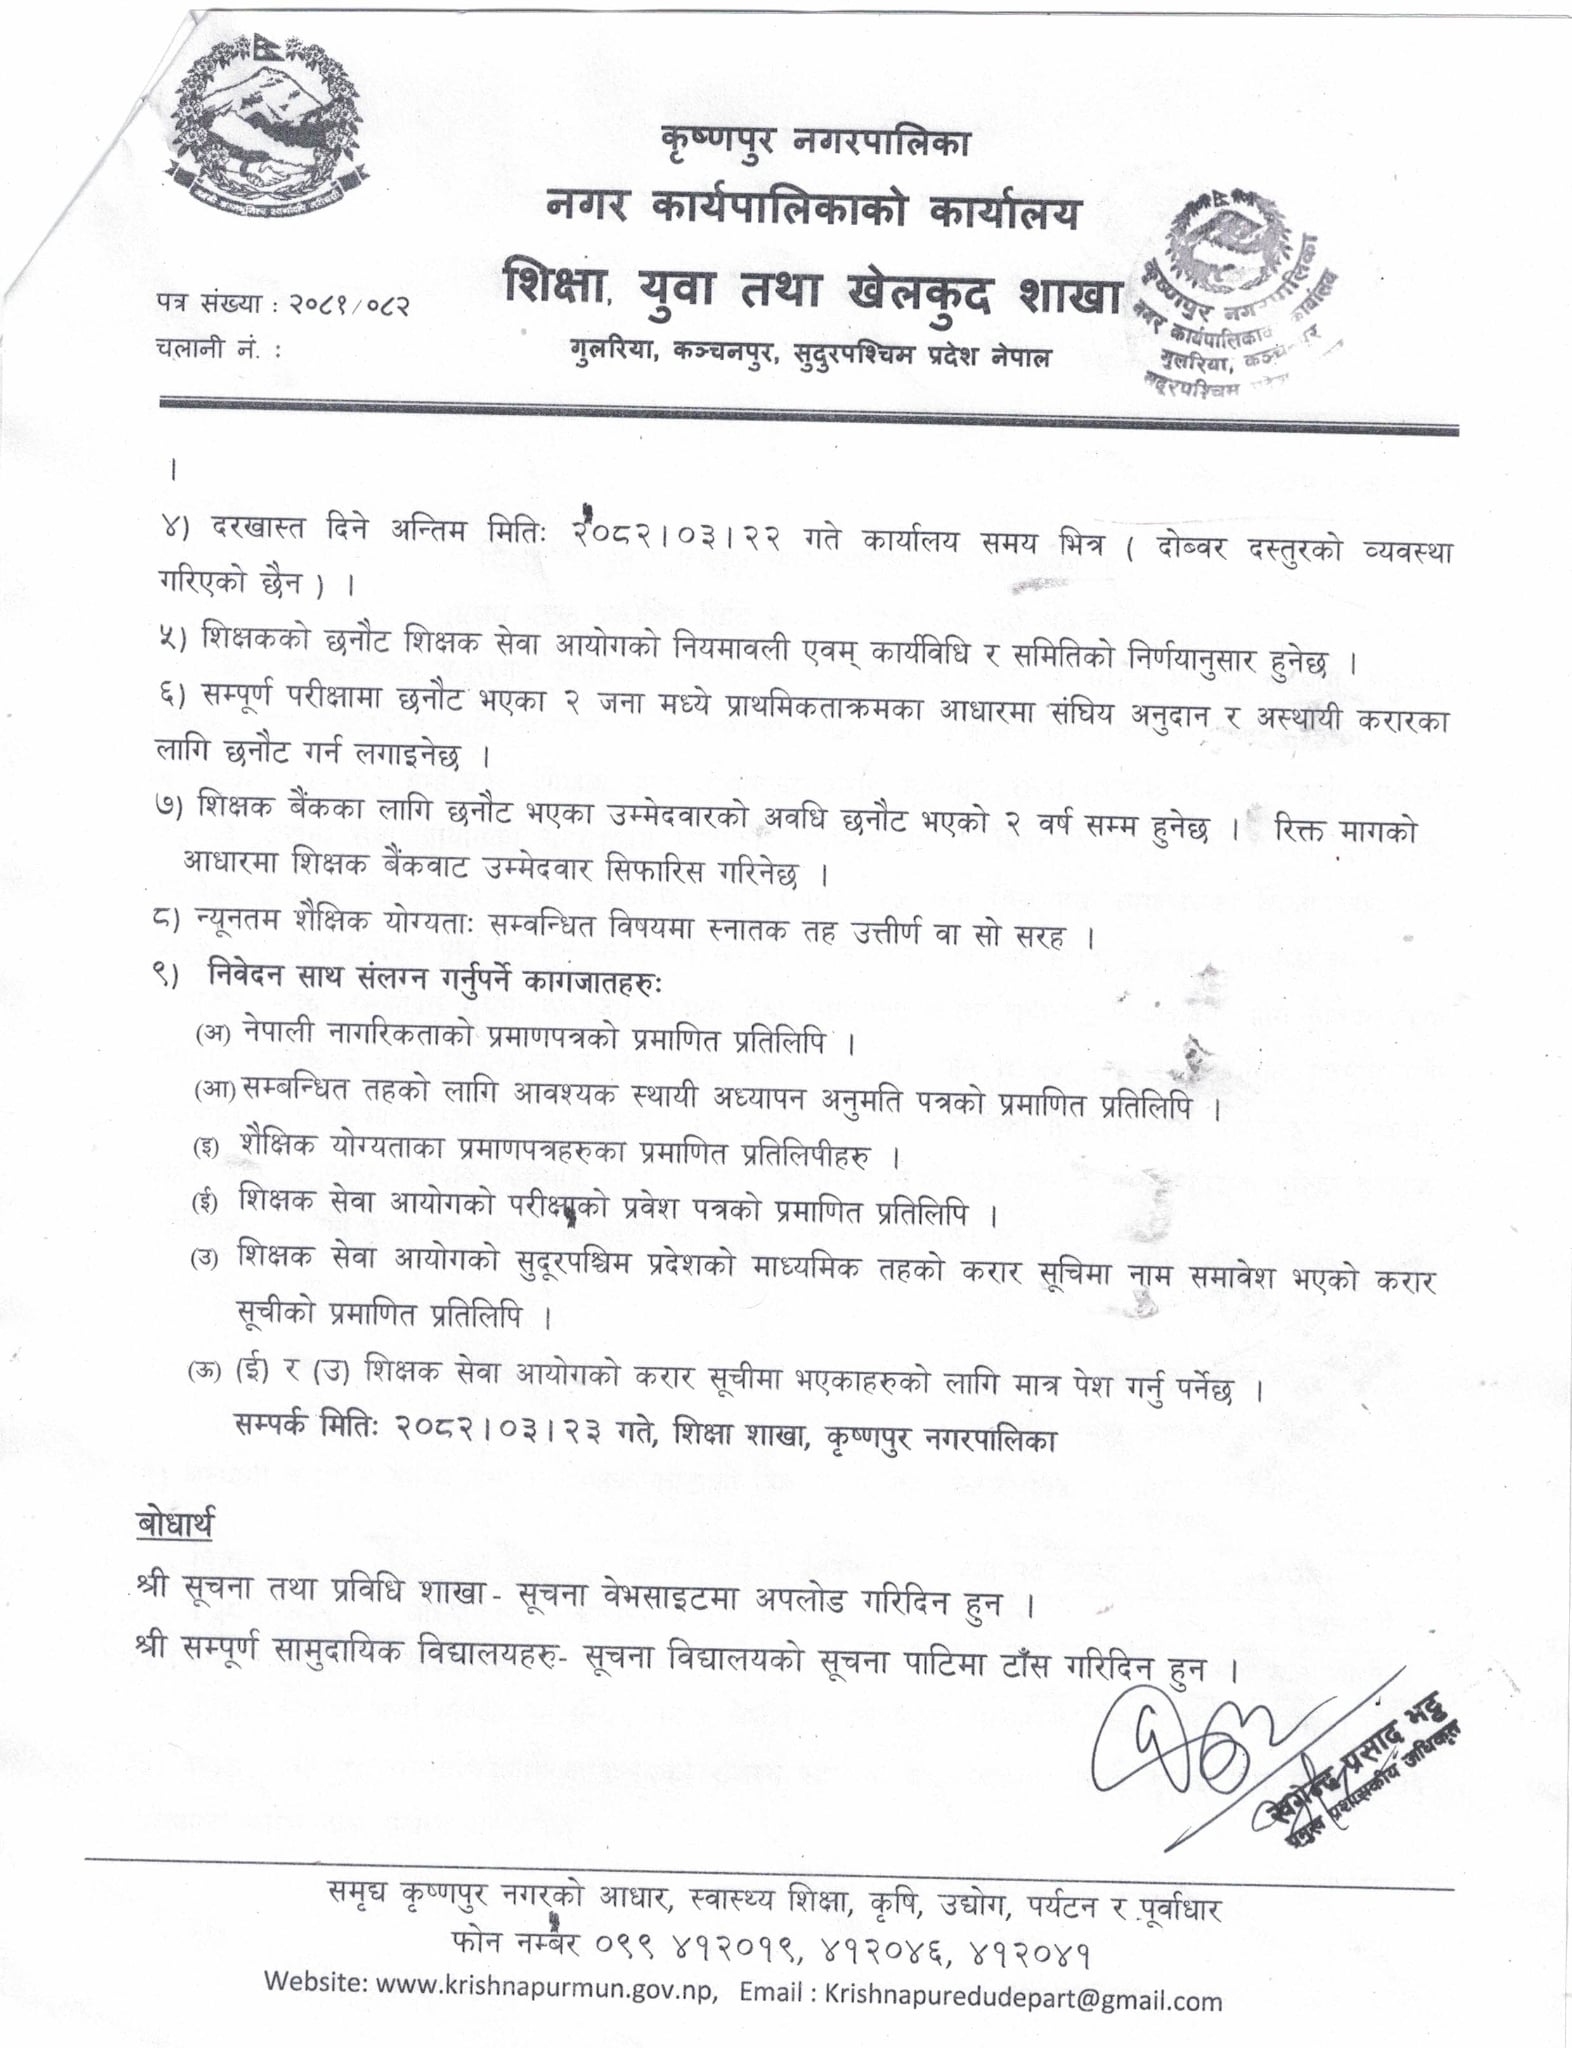 कृष्णपुर नगरपालिका
नगर कार्यपालिकाको कार्यालय
शिक्षा, युवा तथा खेलकुद शाखा
गुलरिया, कञ्चनपुर, सुदुरपश्चिम प्रदेश नेपाल
पत्र संख्या : २०८१/०८२
चलानी नं. :
कृष्णपुर नगरपालिका
नगर कार्यपालिकाको कार्यालय
गुलरिया, कञ्चनपुर
सुदूरपश्चिम प्रदेश
।
४) दरखास्त दिने अन्तिम मितिः २०८२।०३।२२ गते कार्यालय समय भित्र ( दोब्वर दस्तुरको व्यवस्था
गरिएको छैन ) ।
५) शिक्षकको छनौट शिक्षक सेवा आयोगको नियमावली एवम् कार्यविधि र समितिको निर्णयानुसार हुनेछ ।
६) सम्पूर्ण परीक्षामा छनौट भएका २ जना मध्ये प्राथमिकताक्रमका आधारमा संघिय अनुदान र अस्थायी करारका
लागि छनौट गर्न लगाइनेछ ।
७) शिक्षक बैंकका लागि छनौट भएका उम्मेदवारको अवधि छनौट भएको २ वर्ष सम्म हुनेछ । रिक्त मागको
आधारमा शिक्षक बैंकवाट उम्मेदवार सिफारिस गरिनेछ ।
८) न्यूनतम शैक्षिक योग्यताः सम्वन्धित विषयमा स्नातक तह उत्तीर्ण वा सो सरह ।
९) निवेदन साथ संलग्न गर्नुपर्ने कागजातहरुः
(अ) नेपाली नागरिकताको प्रमाणपत्रको प्रमाणित प्रतिलिपि ।
(आ) सम्बन्धित तहको लागि आवश्यक स्थायी अध्यापन अनुमति पत्रको प्रमाणित प्रतिलिपि ।
(इ) शैक्षिक योग्यताका प्रमाणपत्रहरुका प्रमाणित प्रतिलिपीहरु ।
(ई) शिक्षक सेवा आयोगको परीक्षाको प्रवेश पत्रको प्रमाणित प्रतिलिपि ।
(उ) शिक्षक सेवा आयोगको सुदूरपश्चिम प्रदेशको माध्यमिक तहको करार सूचिमा नाम समावेश भएको करार
सूचीको प्रमाणित प्रतिलिपि ।
(ऊ) (ई) र (उ) शिक्षक सेवा आयोगको करार सूचीमा भएकाहरुको लागि मात्र पेश गर्नु पर्नेछ ।
सम्पर्क मितिः २०८२।०३।२३ गते, शिक्षा शाखा, कृष्णपुर नगरपालिका
बोधार्थ
श्री सूचना तथा प्रविधि शाखा - सूचना वेभसाइटमा अपलोड गरिदिन हुन ।
श्री सम्पूर्ण सामुदायिक विद्यालयहरु- सूचना विद्यालयको सूचना पाटिमा टाँस गरिदिन हुन ।
खगेन्द्र प्रसाद भट्ट
प्रमुख प्रशासकीय अधिकृत
समृद्य कृष्णपुर नगरको आधार, स्वास्थ्य शिक्षा, कृषि, उद्योग, पर्यटन र पूर्वाधार
फोन नम्बर ०९९ ४१२०१९, ४१२०४६, ४१२०४१
Website: www.krishnapurmun.gov.np, Email : Krishnapuredudepart@gmail.com